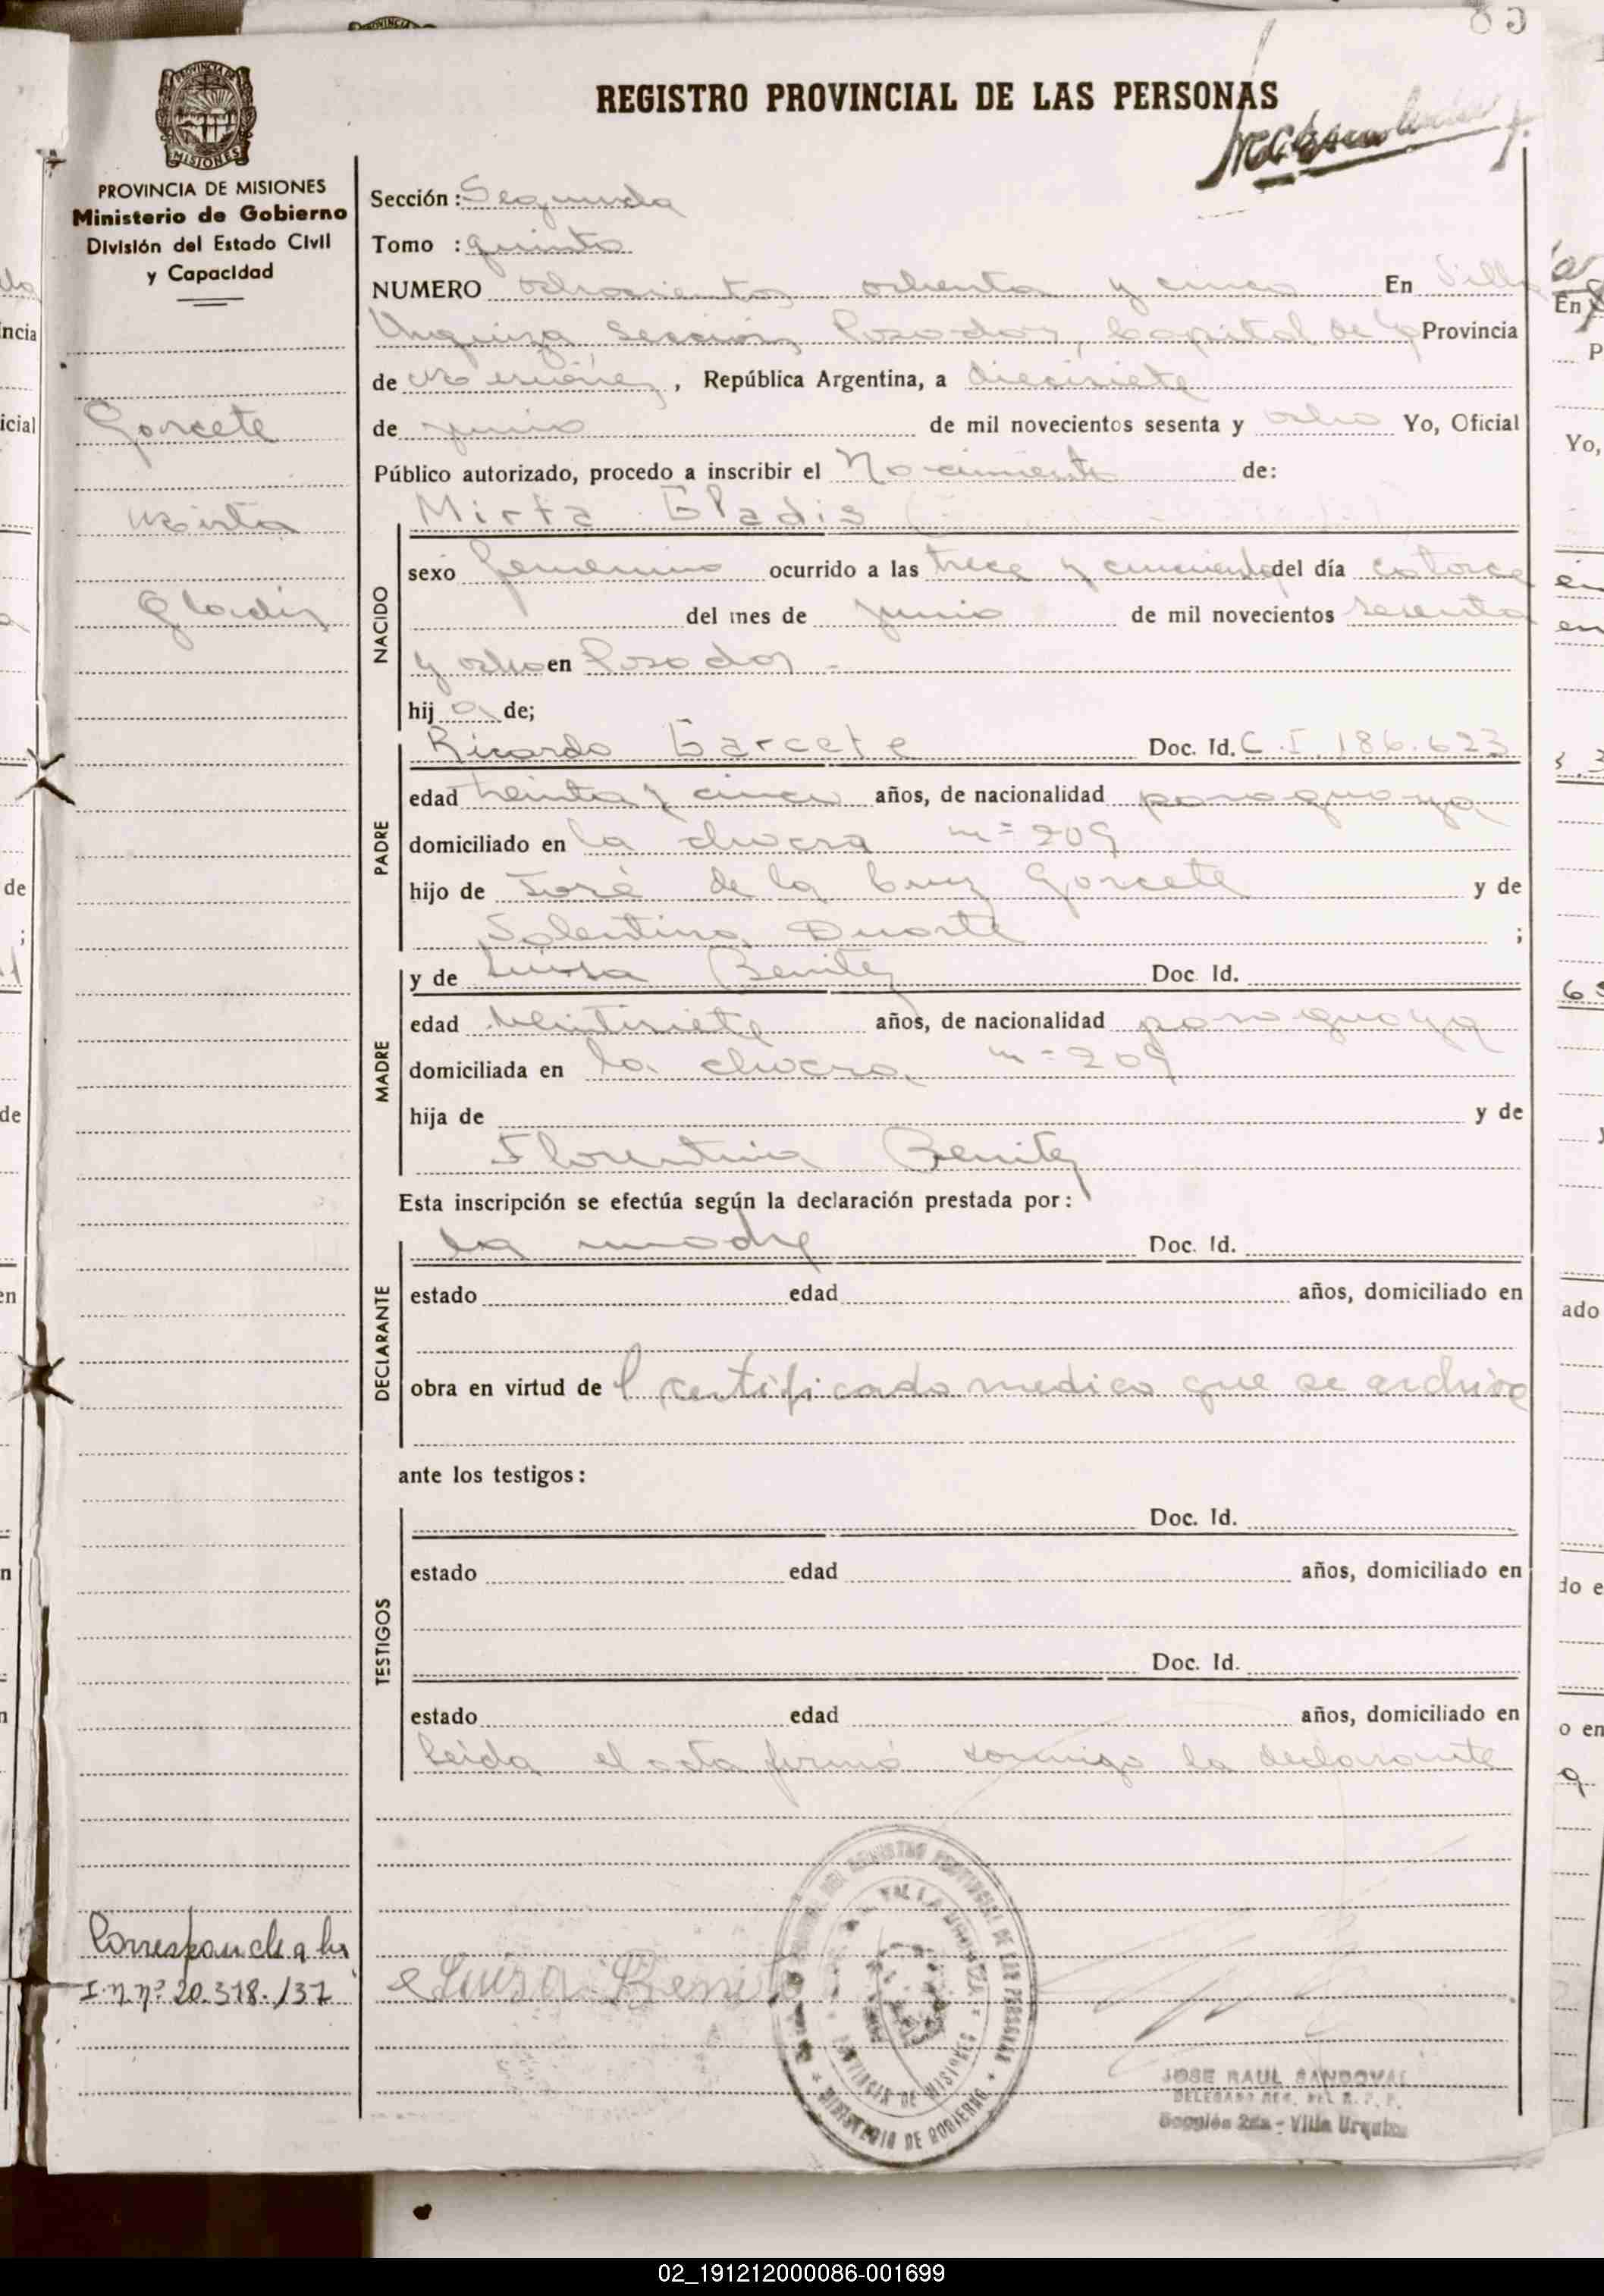 85
REGISTRO PROVINCIAL DE LAS PERSONAS
PROVINCIA DE MISIONES
Ministerio de Gobierno
División del Estado Civil
y Capacidad
Garcete
Mirta
Gladis
Sección : Segunda
Tomo : quinto
NUMERO ochocientos ochenta y cinco En Villa
Urquiza Sección Posadas, Capital de la Provincia
de Misiones, República Argentina, a diecisiete
de junio de mil novecientos sesenta y ocho Yo, Oficial
Público autorizado, procedo a inscribir el Nacimiento de:
Mirta Gladis
NACIDO
sexo femenino ocurrido a las trece y cincuenta del día catorce
del mes de junio de mil novecientos sesenta
y ocho en Posadas -
hij a de;
PADRE
Ricardo Garcete Doc. Id. C.I. 186.623
edad treinta y cinco años, de nacionalidad paraguaya
domiciliado en la chacra nº 209
hijo de José de la Cruz Garcete y de
Duarte ;
MADRE
y de Luisa Benitez Doc. Id.
edad veintisiete años, de nacionalidad paraguaya
domiciliada en la chacra nº 209
hija de y de
Florentina Benitez
Esta inscripción se efectúa según la declaración prestada por:
DECLARANTE
la madre Doc. Id.
estado edad años, domiciliado en
obra en virtud de l certificado medico que se archiva
ante los testigos:
TESTIGOS
Doc. Id.
estado edad años, domiciliado en
Doc. Id.
estado edad años, domiciliado en
Leida el acta firmó conmigo la declarante
Corresponde a la
I.N nº 20.378./37
Luisa Benite
REGISTRO PROVINCIAL DE LAS PERSONAS
VILLA URQUIZA
PROVINCIA DE MISIONES
MINISTERIO DE GOBIERNO
JOSE RAUL SANDOVAL
DELEGADO REG. DEL R. P. P.
Sección 2da - Villa Urquiza
02_191212000086-001699